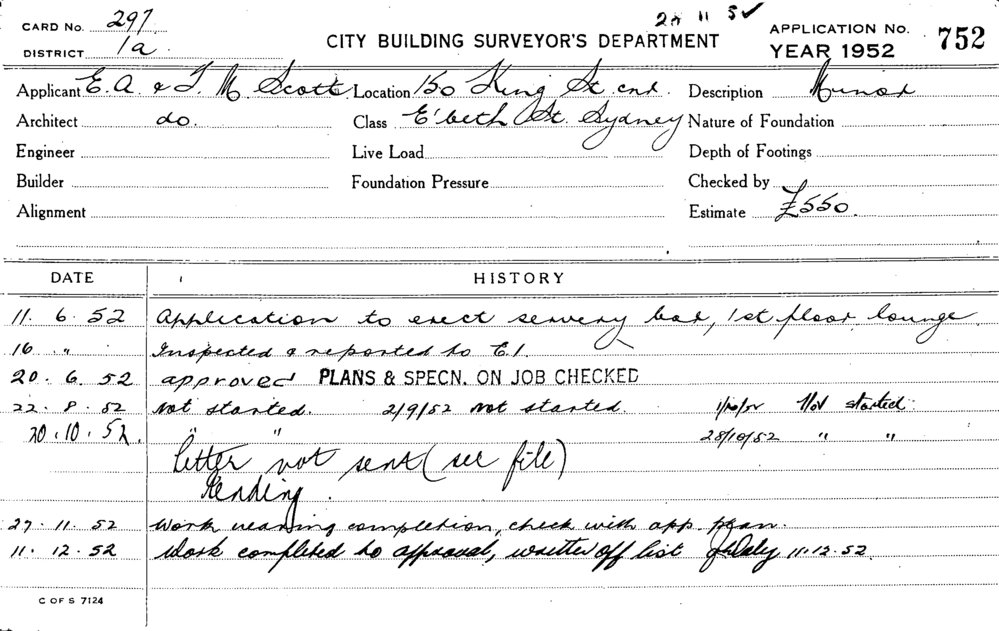 CARD No. 297
28 11 52 ✓
APPLICATION No. 752
DISTRICT 1a.
CITY BUILDING SURVEYOR'S DEPARTMENT
YEAR 1952
Applicant E. A. & F. M Scott Location 150 King St cnr. Description Minor
Architect do. Class E'beth St. Sydney Nature of Foundation
Engineer Live Load Depth of Footings
Builder Foundation Pressure Checked by
Alignment Estimate £550.
DATE HISTORY
11. 6. 52 Application to erect servery bar, 1st floor lounge
16 " Inspected & reported to E.I.
20. 6. 52 approved PLANS & SPECN. ON JOB CHECKED
22. 8. 52 not started. 2/9/52 not started. 1/10/52 Not started.
20. 10. 52. " " 28/10/52 " "
letter not sent (see file)
Pending.
27. 11. 52 Work nearing completion, check with app. plan.
11. 12. 52 Work completed to approval, written off list 11.12.52.
C OF S 7124